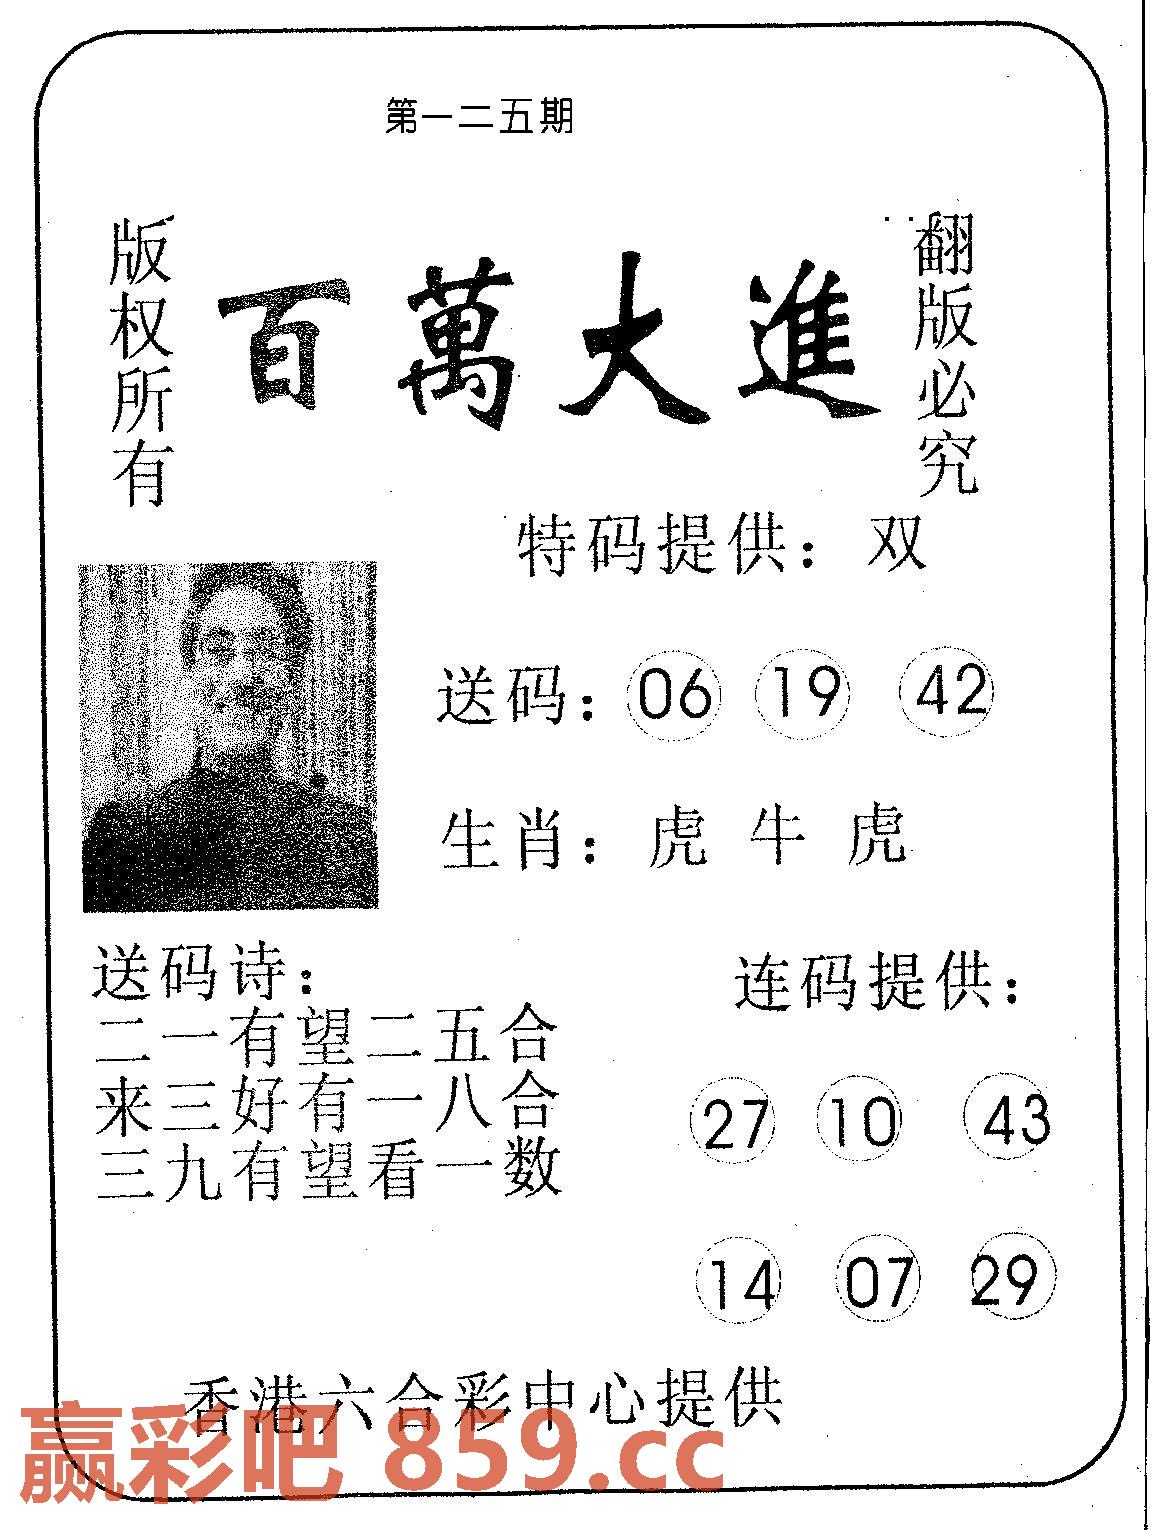 第一二五期
版权所有
百萬大進
翻版必究
特码提供：双
送码：06 19 42
生肖：虎 牛 虎
送码诗：
二一有望二五合
来三好有一八合
三九有望看一数
连码提供：
27 10 43
14 07 29
香港六合彩中心提供
赢彩吧 859.cc